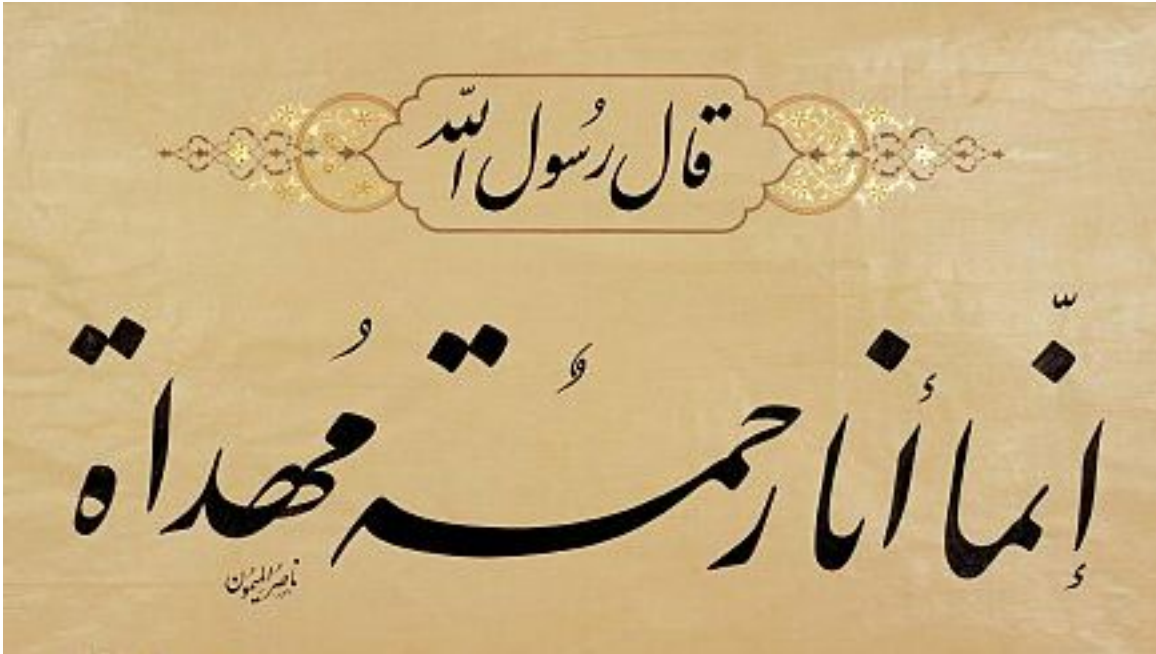 قال رسُول اللّه
إنّما أنا رحمةٌ مُهداة
ناصر الميمون